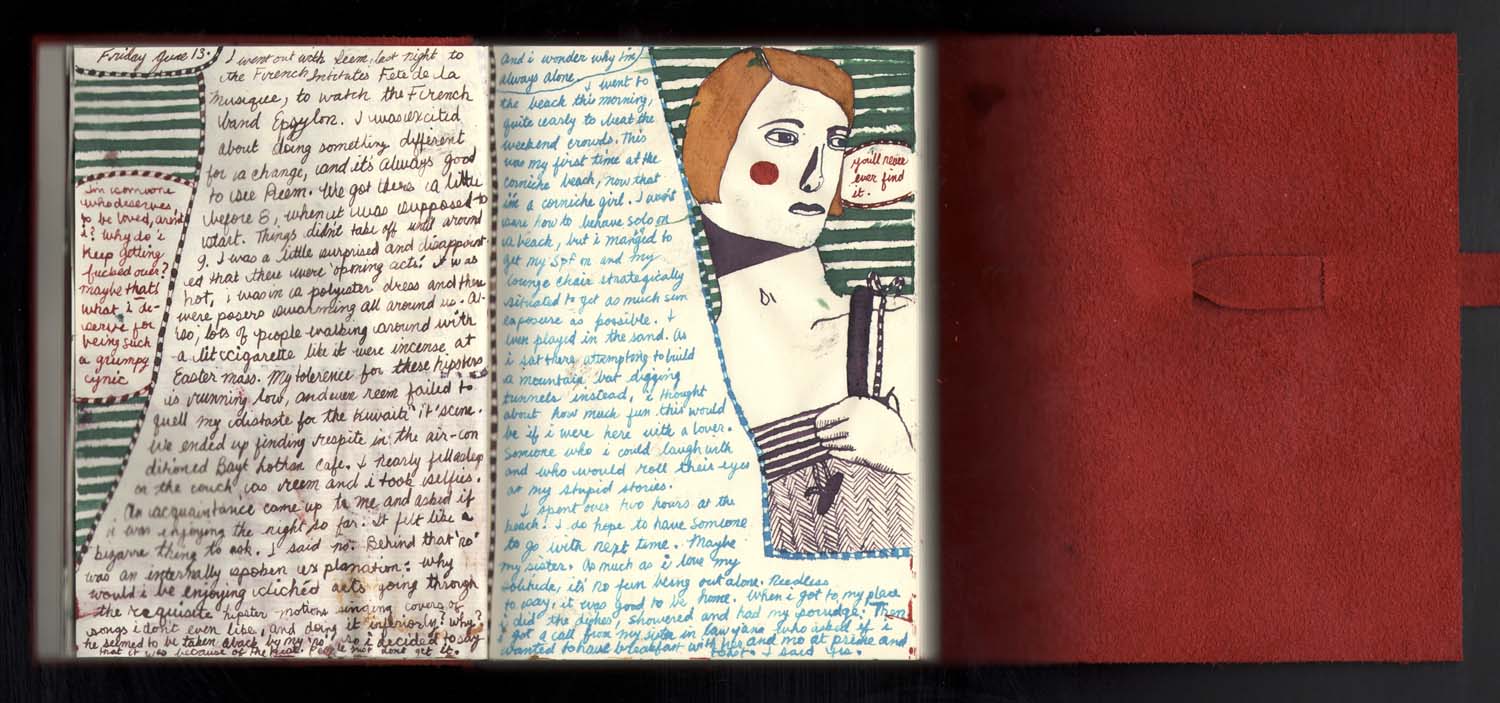 Friday June 13.
I went out with Reem, last night to
the French Institutes Fete de La
Musique, to watch the French
band Epsylon. I was excited
about doing something different
for a change, and it's always good
to see Reem. We got there a little
before 8, when it was supposed to
start. Things didn't take off until around
9. I was a little surprised and disappoint-
ed that there were 'opening acts'. it was
hot, i was in a polyester dress and there
were posers swarming all around us. Al-
so, lots of people walking around with
a lit ciggarette like it were incense at
Easter mass. My tolerence for these hipsters
is running low, and even reem failed to
quell my distaste for the Kuwaiti 'it' scene.
we ended up finding respite in the air-con
ditioned Bayt Lothan cafe. I nearly fell asleep
on the couch as reem and i took selfies.
An acquaintance came up to me and asked if
i was enjoying the night so far. It felt like a
bizarre thing to ask. I said no. Behind that 'no'
was an internally spoken explanation: why
would i be enjoying clichéd acts going through
the requisite hipster motions singing covers of
songs i don't even like, and doing it inferiorly? why?
he seemed to be taken aback by my 'no' so i decided to say
that it was because of the heat. People not get it.
I'm someone
who deserves
to be loved, aren't
i? Why do i
keep getting
fucked over?
maybe that's
what i de-
serve for
being such
a grumpy
cynic
and i wonder why i'm
always alone.
I went to
the beach this morning,
quite early to beat the
weekend crowds. This
was my first time at the
corniche beach, now that
i'm a corniche girl. I wasn't
sure how to behave solo on
a beach, but i manged to
get my spf on and my
lounge chair strategically
situated to get as much sun
exposure as possible. I
even played in the sand. As
i sat there attempting to build
a mountain but digging
tunnels instead, i thought
about how much fun this would
be if i were here with a lover.
Someone who i could laugh with
and who would roll their eyes
at my stupid stories.
I spent over two hours at the
beach. I do hope to have someone
to go with next time. Maybe
my sister. As much as i love my
solitude, it's no fun being out alone. Needless
to say, it was good to be home. When i got to my place
i did the dishes, showered and had my porridge. Then
i got a call from my sister in law yana who asked if i
wanted to have breakfast with her and mo at pride and
I said yes.
you'll never
ever find
it.